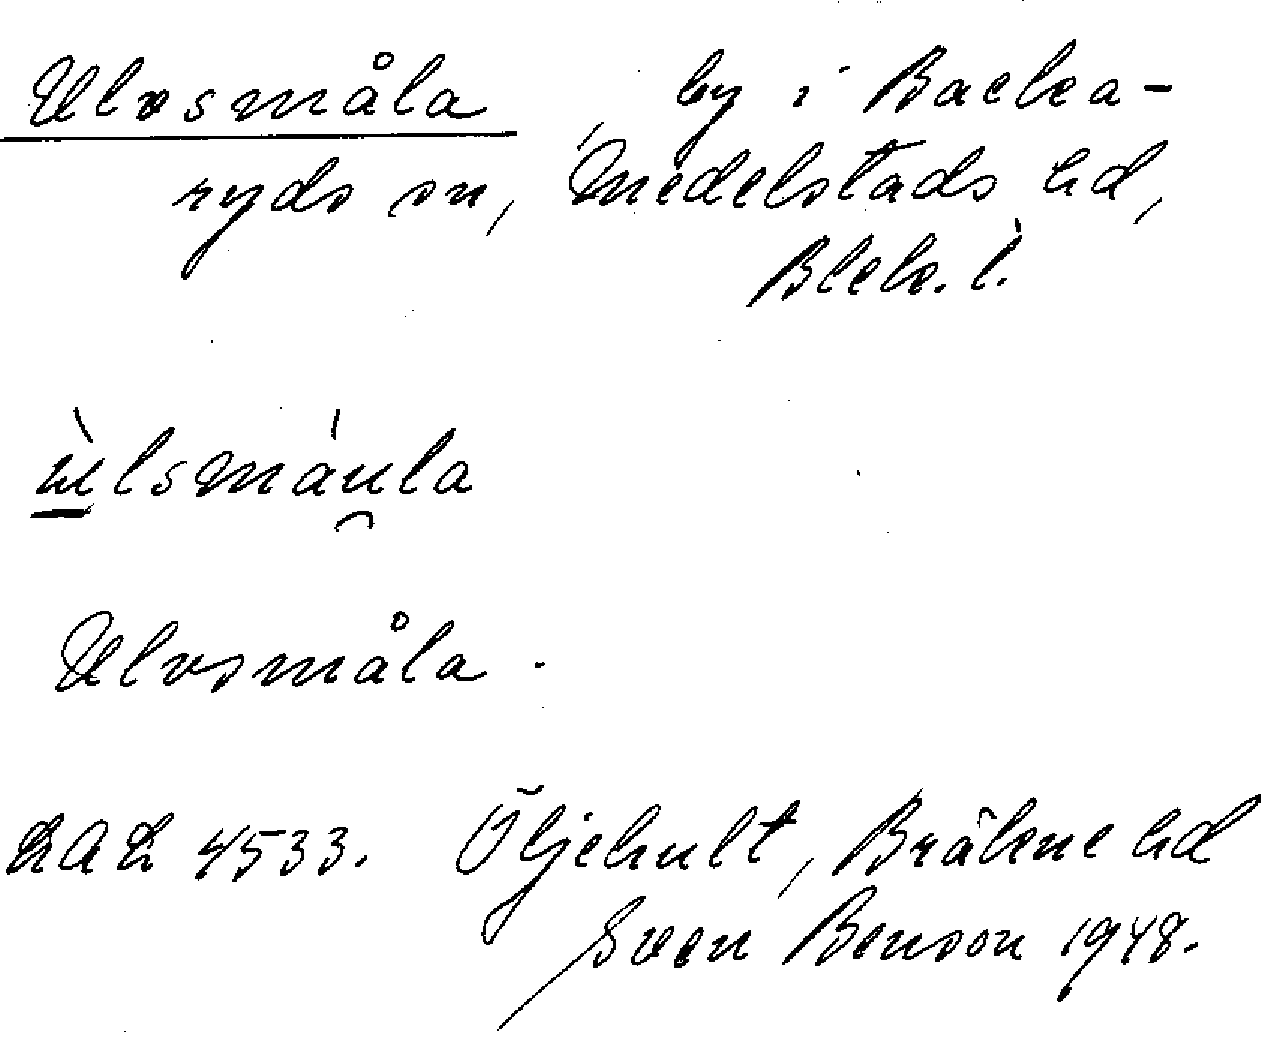 Ulvsmåla by i Backa-
ryds sn, Medelstads hd,
Blek. l.
ùlsmáu̯la
Ulvsmåla.
LAL 4533. Öljehult, Bräkne hd
Sven Benson 1948.